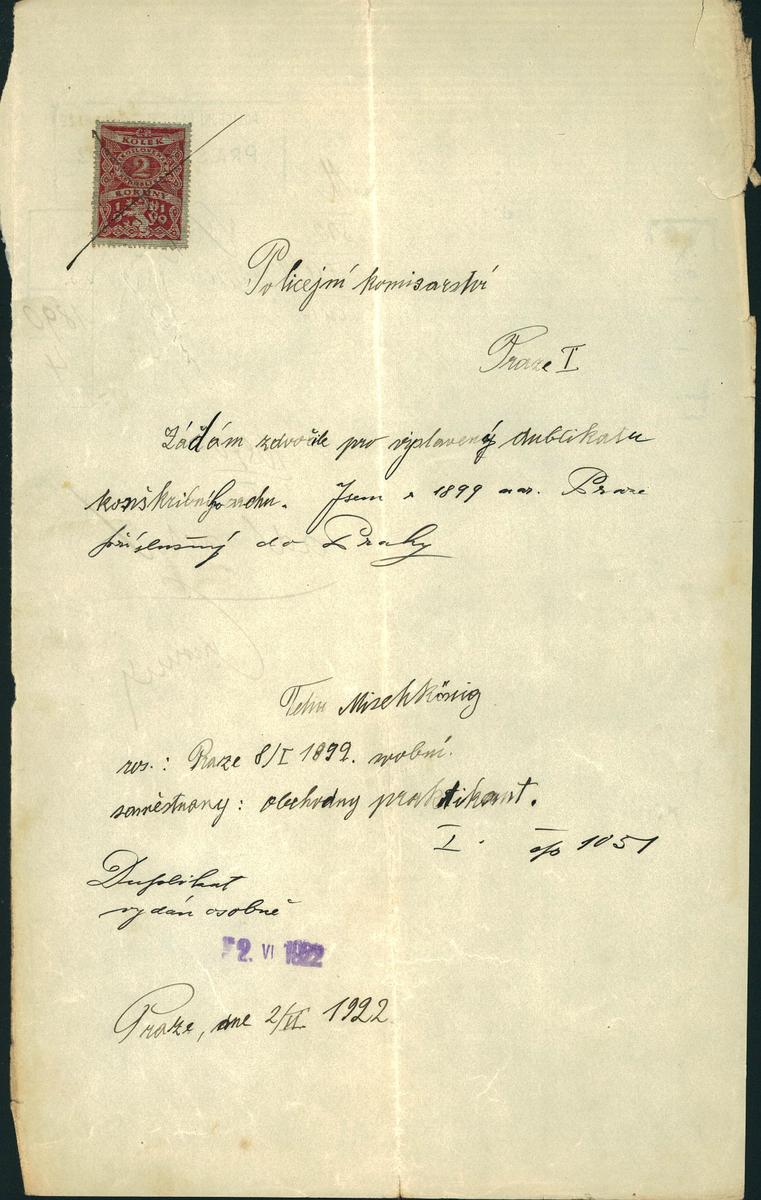 KOLEK
2
KORUNY
1919
Policejní komisarství
Praze I
Žádám zdvořile pro vyplavený dublikatu
konškribního archu. Jsem r 1899 nar. Praze
příslušný do Prahy
Mischkönig
nar.: Praze 8/I 1899. svobní.
zaměstnany: obchodny praktikant.
I. čp 1051
Duplikat
vydán osobně
2. VI 1922
Praze, dne 2/VI 1922